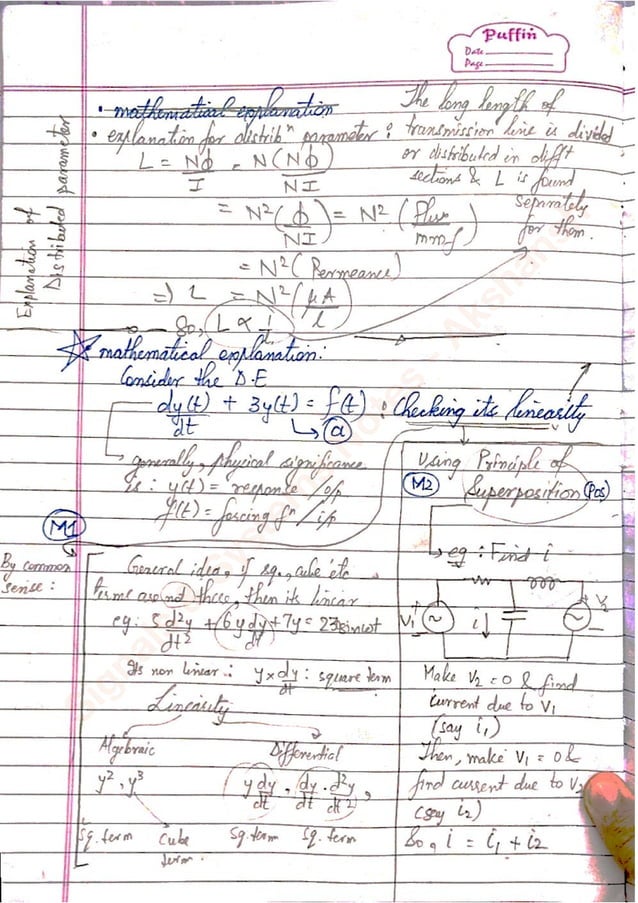 Puffin
Date
Page
• mathematical explanation
• explanation for distribⁿ parameter : The long length of
transmission line is divided
or distributed in difft
sections & L is found
separately
for them.
L = Nφ/I = N(Nφ)/NI
= N²(φ/NI) = N²(Flux/mmf)
= N²(Permeance)
=> L = N²(μA/l)
So, L ∝ 1/l
Explanation of
Distributed parameter
mathematical explanation:
Consider the D.E
dy(t)/dt + 3y(t) = f(t) : Checking its linearity
→ a
generally, physical significance
is : y(t) = response / o/p
f(t) = forcing fⁿ / i/p
M1
By common
sense :
General idea, if sq., cube etc
terms are not there, then its linear
eg: 5d²y/dt² + 6y dy/dt + 7y = 23sinωt
Its non linear ∵ y×dy/dt : square term
Linearity
Algebraic Differential
y², y³ y dy/dt, dy/dt . d²y/dt²,
Sq. term Cube term. Sq. term Sq. term
Using Principle of
M2 Superposition (Pos)
eg : Find i
V₁ + - i + V₂ -
Make V₂ = 0 & find
current due to V₁
(say i₁)
Then, make V₁ = 0 &
find current due to V₂
(say i₂)
So, i = i₁ + i₂